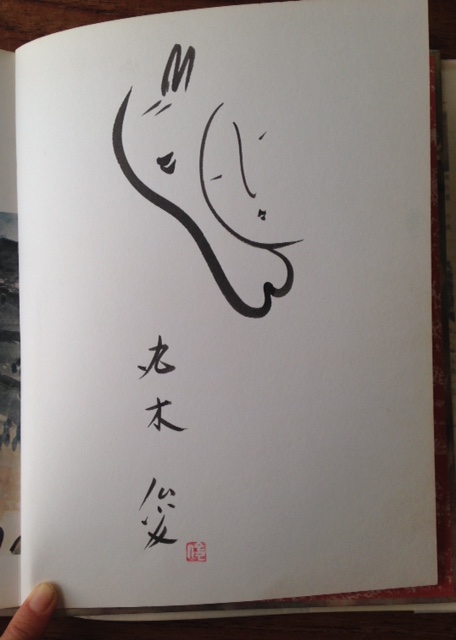 丸木 俊